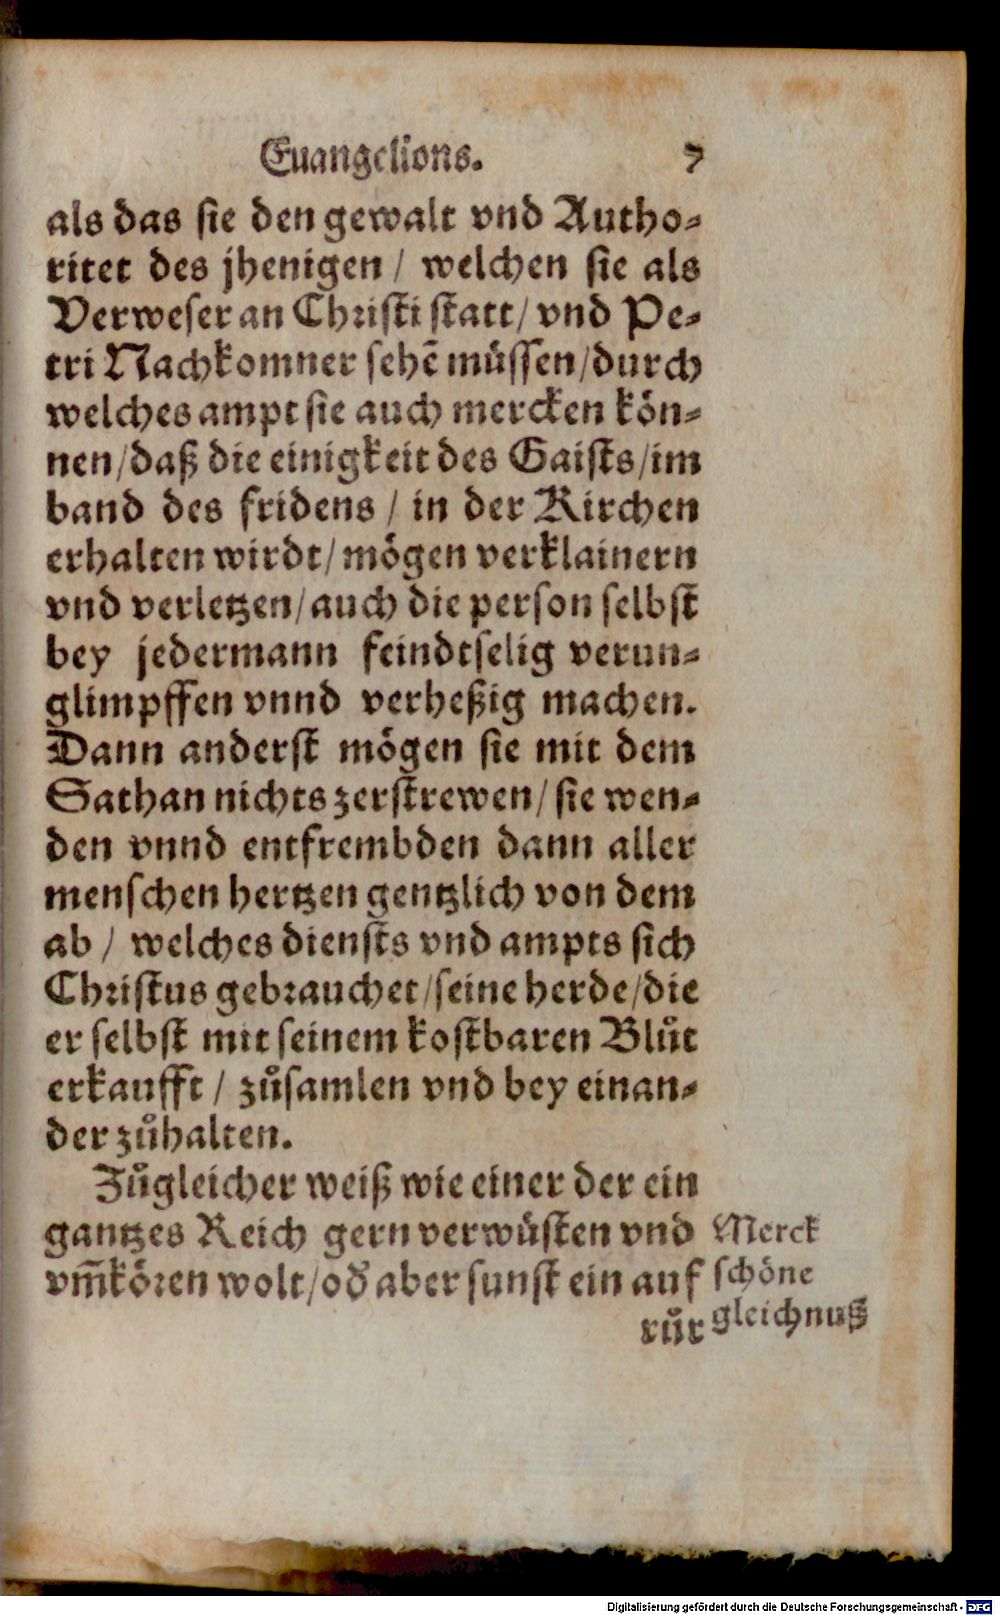 Euangelions. 7
als das sie den gewalt vnd Autho⸗
ritet des jhenigen / welchen sie als
Verweser an Christi statt / vnd Pe⸗
tri Nachkomner sehē müssen / durch
welches ampt sie auch mercken kön⸗
nen / daß die einigkeit des Gaists / im
band des fridens / in der Kirchen
erhalten wirdt / mögen verklainern
vnd verletzen / auch die person selbst
bey jedermann feindtselig verun⸗
glimpffen vnnd verheßig machen.
Dann anderst mögen sie mit dem
Sathan nichts zerstrewen / sie wen⸗
den vnnd entfrembden dann aller
menschen hertzen gentzlich von dem
ab / welches diensts vnd ampts sich
Christus gebrauchet / seine herde / die
er selbst mit seinem kostbaren Blůt
erkaufft / zůsamlen vnd bey einan⸗
der zůhalten.
Zůgleicher weiß wie einer der ein
gantzes Reich gern verwüsten vnd
vm̄kören wolt / od̕ aber sunst ein auf
růr
Merck
schöne
gleichnuß
Digitalisierung gefördert durch die Deutsche Forschungsgemeinschaft - DFG